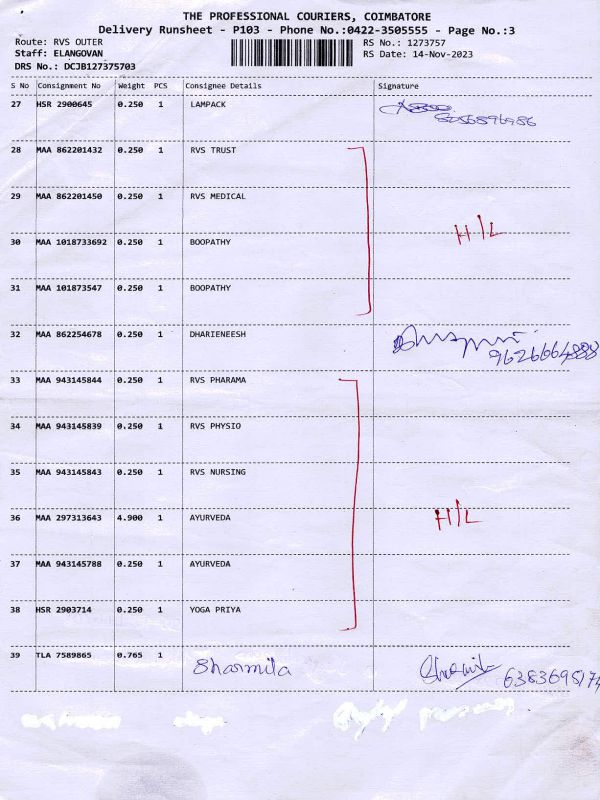 THE PROFESSIONAL COURIERS, COIMBATORE
Delivery Runsheet - P103 - Phone No.:0422-3505555 - Page No.:3
Route: RVS OUTER RS No.: 1273757
Staff: ELANGOVAN RS Date: 14-Nov-2023
DRS No.: DCJB127375703
S No Consignment No Weight PCS Consignee Details Signature
27 HSR 2900645 0.250 1 LAMPACK
28 MAA 862201432 0.250 1 RVS TRUST
29 MAA 862201450 0.250 1 RVS MEDICAL
H/L
30 MAA 1018733692 0.250 1 BOOPATHY
31 MAA 101873547 0.250 1 BOOPATHY
32 MAA 862254678 0.250 1 DHARIENEESH
9626664888
33 MAA 943145844 0.250 1 RVS PHARAMA
34 MAA 943145839 0.250 1 RVS PHYSIO
35 MAA 943145843 0.250 1 RVS NURSING
36 MAA 297313643 4.900 1 AYURVEDA H/L
37 MAA 943145788 0.250 1 AYURVEDA
38 HSR 2903714 0.250 1 YOGA PRIYA
39 TLA 7589865 0.765 1 Sharmila